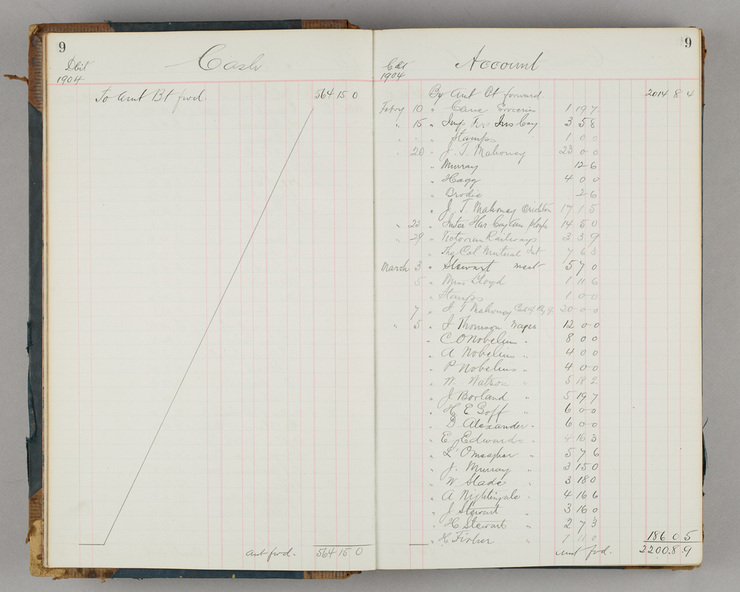 9
Cash
1904
To Amt Bt fwd. 564 15 0
Amt fwd. 564 15 0
9
Account
1904
By Amt Bt forward 2014 8 4
Febry 10 " Groceries 1 19 7
" 15 " Ins Coy 3 5 8
" Stamps 1 0 0
" 20 " J. T. Mahoney 23 0 0
" Murray 12 6
" Hagg 4 0 0
" Brodie 2 6
" J. T. Mahoney 17 1 5
" 14 5 0
" Victorian Railways 3 3 9
" Mutual 7 6 3
March 3 " Stewart meat 5 7 0
5 " Miss Lloyd 1 11 6
" Stamps 1 0 0
7 " J T Mahoney 20 0 0
" 5 " J Thomson Wages 12 0 0
" C O Nobelius " 8 0 0
" A Nobelius " 4 0 0
" P Nobelius " 4 0 0
" W. Watson " 5 18 2
" J Borland " 5 19 7
" H E Goff " 6 0 0
" D. Alexander " 6 0 0
" E J Edwards " 4 16 3
" L O'Meagher " 5 7 6
" J. Murray " 3 15 0
" W Slade " 3 18 0
" A Nightingale " 4 16 6
" J Stewart " 3 16 0
" H Stewart " 2 7 3
" H Fisher " 1 11 0 186 0 5
Amt fwd. 2200 8 9